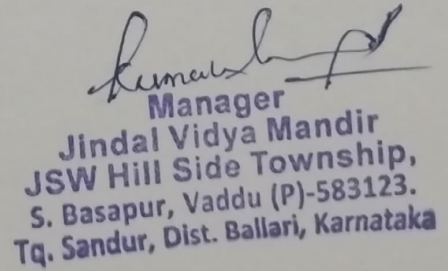 Manager
Jindal Vidya Mandir
JSW Hill Side Township,
S. Basapur, Vaddu (P)-583123.
Tq. Sandur, Dist. Ballari, Karnataka